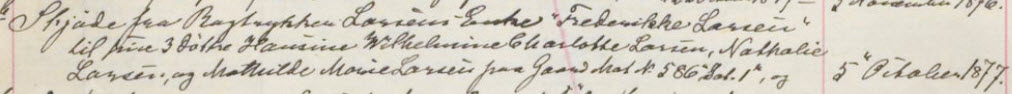 Skjöde fra Bogtrykker Larsens Enke "Frederikke Larsen"
til sine 3 døtre Hansine Wilhelmine Charlotte Larsen, Nathalie
Larsen, og Mathilde Marie Larsen paa Gaard Mat. N. 586 "Lit. 1", og 5 October 1877.